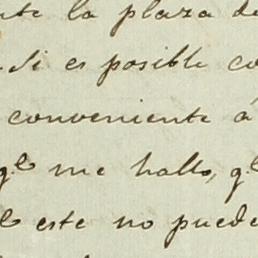 nte la plaza de
Si es posible co
conveniente á
q.e me hallo, q.e
e este no puede